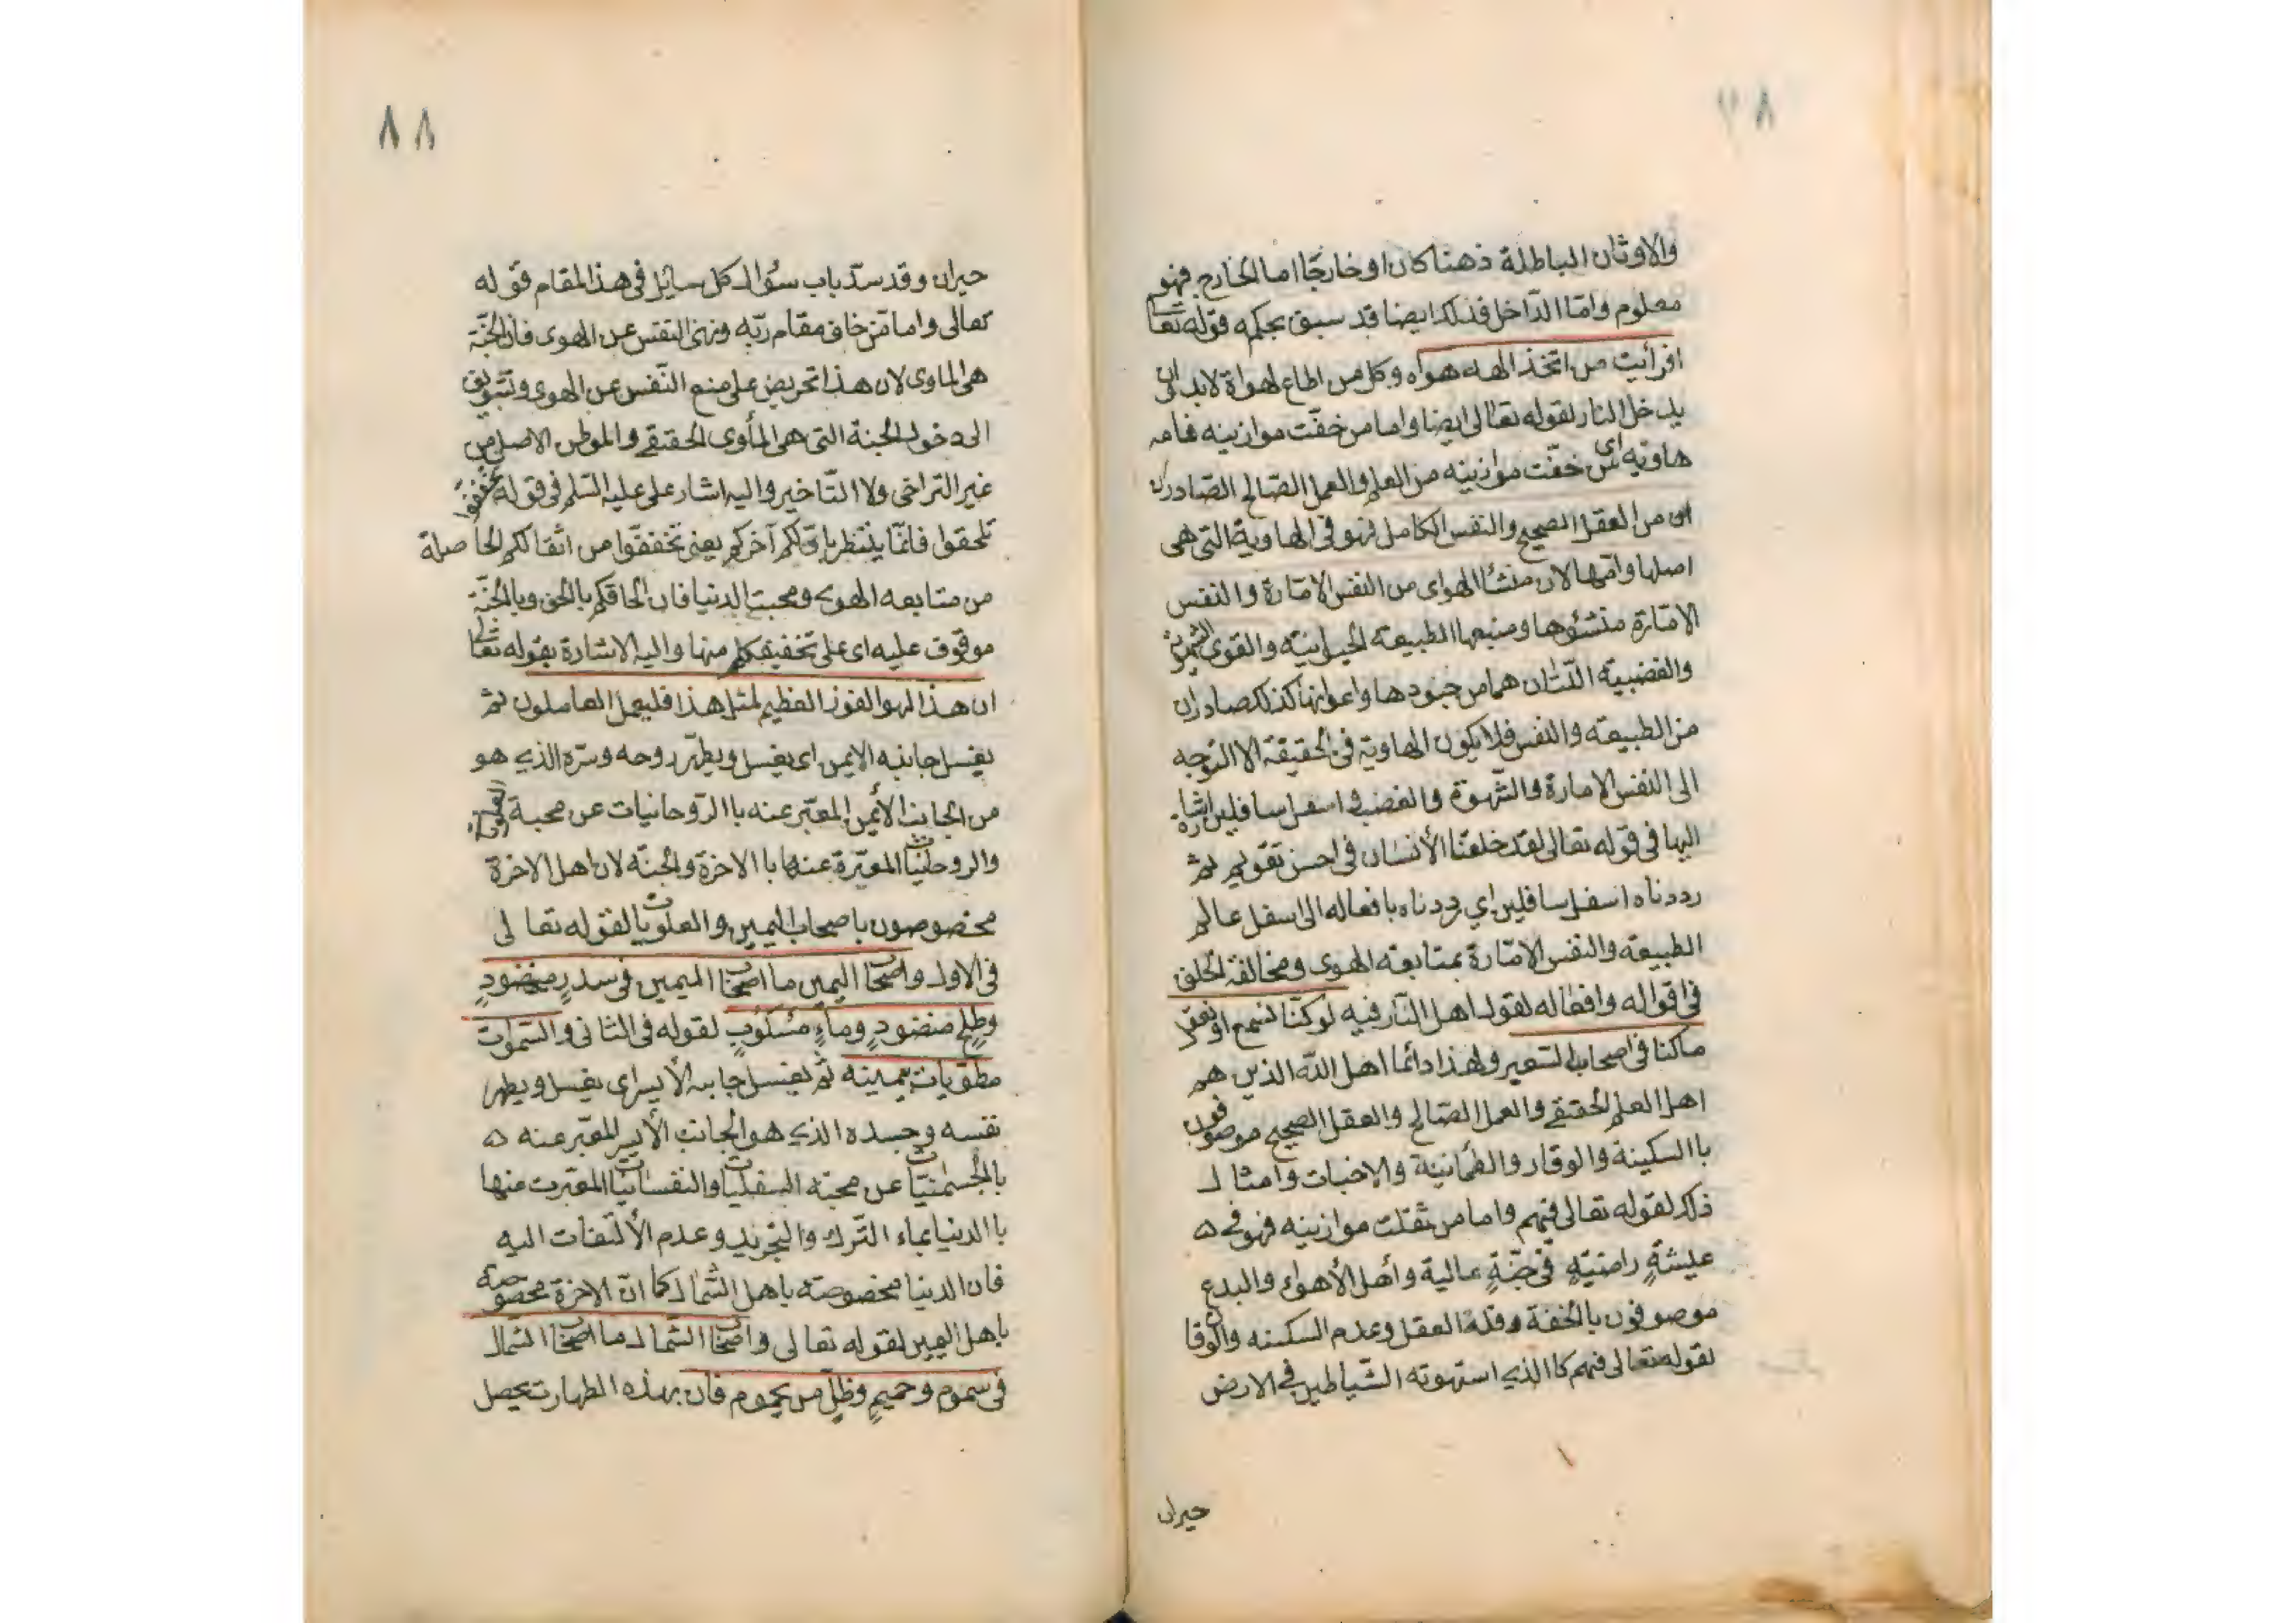 ٨٧
والاوثان الباطلة ذهنا كان او خارجًا اما الخارج فهو
معلوم وامّا الدّاخل فذلك ايضا قد سبق بحكمه قوله تعا
افرأيت من اتخذ الهه هواه وكل من اطاع لهواه لابد ان
يدخل النار لقوله تعالى ايضا واما من خفّت موازينه فامه
هاويه اى من خفّت موازينه من العلم والعمل الصّالح الصّادران
اى من العقل الصحيح والنفس الكامل فهو فى الهاوية التى هى
اصلها وامّها لان منشأ الهواى من النفس الامّارة والنفس
الامّارة منشؤها ومنبعها الطبيعه الحيوانيّه والقوى الشهويّة
والغضبية اللتان هما من جنودها واعوانها كذلك صادران
من الطبيعه والنفس فلا يكون الهاوية فى الحقيقة الا التوجه
الى النفس الامارة والشّهوة والغضب واسفل سافلين اشارة
اليها فى قوله تعالى لقد خلقنا الأنسان فى احسن تقويم ثم
رددناه اسفل سافلين اي رددناه بافعاله الى اسفل عالم
الطبيعه والنفس الامّارة بمتابعه الهوى ومخالفة الخلق
فى اقواله وافعاله لقول اهل النّار فيه لو كنّا نسمع او نعقل
ما كنا فى اصحاب السّعير ولهذا دائما اهل اللّه الذين هم
اهل العلم الحقيقے والعمل الصّالح والعقل الصحيح موصوفون
باالسكينة والوقار والطمانينة والاخبات وامثال
ذلك لقوله تعالى فيهم واما من ثقلت موازينه فهو فے
عيشةٍ راضيّهٍ فى جنّةٍ عالية وأهل الأهواء والبدع
موصوفون بالخفة وقلة العقل وعدم السكينه والوقار
لقوله تعالى فيهم كاالذي استهوته الشّياطين فے الارض
حيران
٨٨
حيران وقد سدّ باب سؤال كل سايل فى هذا المقام قوله
تعالى واما من خاف مقام ربّه ونهى النفس عن الهوى فان الجنّة
هى الماوى لان هذا تحريض على منع النّفس عن الهوى وتشويق
الى دخول الجنة التى هى المأوى الحقيقے والموطن الاصلى من
غير التراخى ولا التّاخير واليه اشار على عليه السّلم فى قوله تخففوا
تلحقوا فانّما ينتظر باوّلكم آخركم يعنى تخففوا من اثقالكم الحاصلة
من متابعه الهوى ومحبت الدنيا فان الحاقكم بالحق وبالجنّة
موقوف عليه اى على تخفيفكم منها واليه الاشارة بقوله تعا
ان هذا لهو الفوز العظيم لمثل هذا فليعمل العاملون ثم
يغسل جانبه الايمن اى يغسل ويطهّر روحه وسرّه الذي هو
من الجانب الأيمن المعبّر عنه باالرّوحانيات عن محبة
والروحانيّات المعبّرة عنها باالاخرة والجنّه لان اهل الاخرة
مخصوصون باصحاب اليمين والعلويات لقوله تعالى
فى الاول واصحاب اليمين ما اصحاب اليمين فى سدرٍ مخضودٍ
وطلحٍ منضودٍ وماءٍ مسكوبٍ لقوله فى الثانى والسّموات
مطويات بيمينه ثم يغسل جانبه الأيسر اى يغسل ويطهر
نفسه وجسده الذي هو الجانب الأيسر المعبّر عنه
بالجسمانيّات عن محبته السفليات والنفسانيات المعبرت منها
باالدنيا بماء التّرك والتجريد وعدم الألتفات اليه
فان الدنيا مخصوصته باهل الشمال كما انّ الاخرة مخصوصه
باهل اليمين لقوله تعالى واصحاب الشمال ما اصحاب الشمال
فى سموم وحميمٍ وظلّ من يحموم فان بهذه الطهارت يحصل